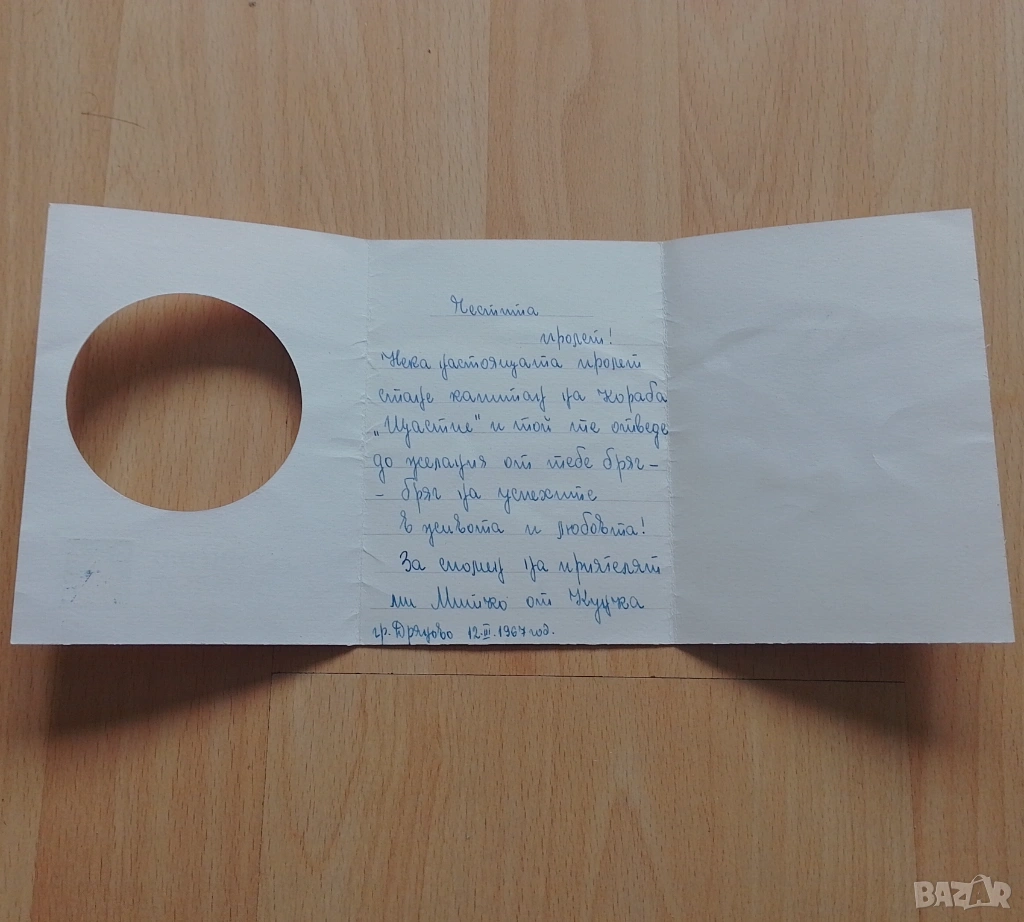 Честита
пролет!
Нека настоящата пролет
стане капитан на кораба
„Щастие" и той те отведе
до желания от тебе бряг -
- бряг на успехите
в живота и любовта!
За спомен на приятелят
ми Митко от Кучка
гр. Дряново 12.III.1967 год.
BAZAR